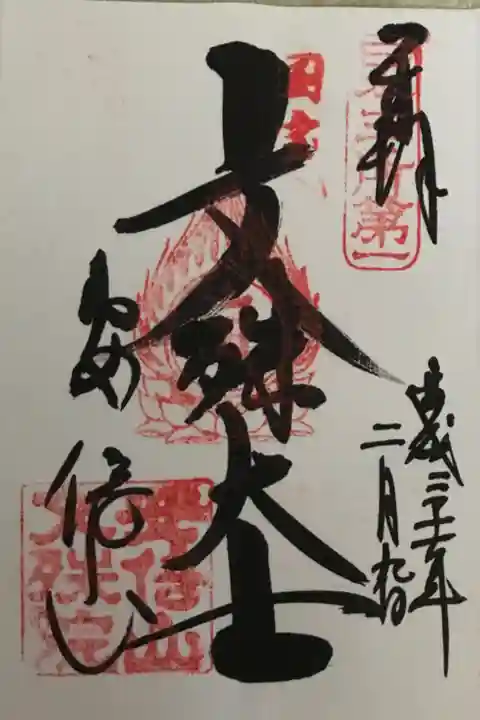 奉拝
第一
平成三十一年
二月九日
文殊大士
安倍山
安倍山
文殊院